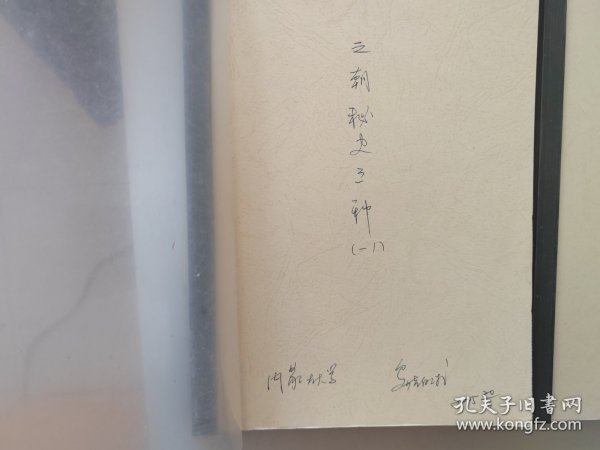 元朝秘史三种
(一)
内蒙古大学
孔夫子旧书网
www.kongfz.com